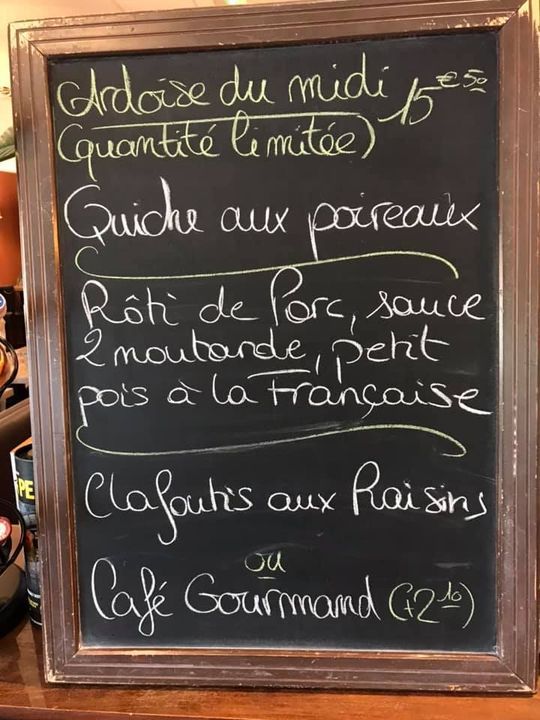 Ardoise du midi 15€50
(quantité limitée)
Quiche aux poireaux
Rôti de Porc, sauce
2 moutarde, petit
pois à la Française
Clafoutis aux Raisins
ou
Café Gourmand (+2 10)
PE